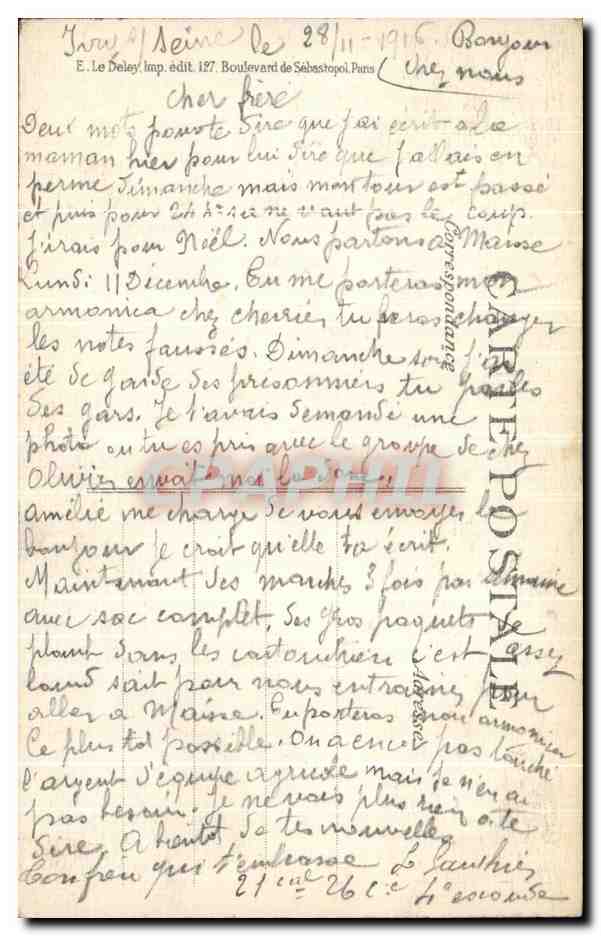 Ivry s/ Seine le 28/11 - 1916. Bonjour
chez nous
E. Le Deley, Imp. édit. 127, Boulevard de Sébastopol, Paris
cher frère
Deux mots pour te dire que j'ai écrit a la
maman hier pour lui dire que j'allais en
perme dimanche mais mon tour est passé
et puis pour 24 h ne vaut pas le coup.
J'irais pour Noël. Nous partons a Maisse
Lundi 11 Décembre. Tu me porteras mon
armonica chez tu feras changer
les notes faussés. Dimanche soir j'ai
été de garde des prisonniers tu parles
des gars. Je t'avais demandé une
photo ou tu es pris avec le groupe de chez
Olivier envoit moi la donc,
amélie me charge de vous envoyer le
bonjour je croit qu'elle ta écrit.
Maintenant des marches 3 fois par semaine
avec sac complet, des gros paquets de
plomb dans les cartouchière c'est assez
lourd sait pour nous entrainer pour
aller a Maisse. Tu porteras mon armonica
Le plus tot possible. On a encor pas touché
l'argent d'équipe agricole mais je n'en ai
pas besoin. Je ne vais plus rien a te
dire. A bientot de tes nouvelles
Ton frère qui t'embrasse L Gauthier
21 cal 26 Cie 4e escouade
CARTE POSTALE
Correspondance
Adresse
CPAPHIL